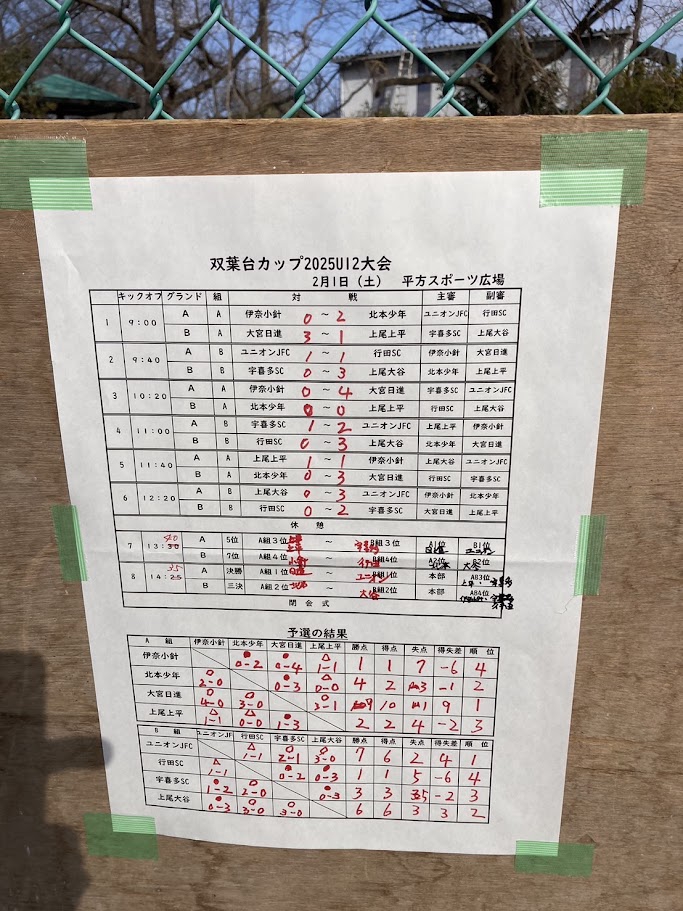 双葉台カップ2025U12大会
2月1日（土） 平方スポーツ広場
キックオフ グランド 組 対 戦 主審 副審
1 9:00 A A 伊奈小針 0 ～ 2 北本少年 ユニオンJFC 行田SC
B A 大宮日進 3 ～ 1 上尾上平 宇喜多SC 上尾大谷
2 9:40 A B ユニオンJFC 1 ～ 1 行田SC 伊奈小針 大宮日進
B B 宇喜多SC 0 ～ 3 上尾大谷 北本少年 上尾上平
3 10:20 A A 伊奈小針 0 ～ 4 大宮日進 宇喜多SC ユニオンJFC
B A 北本少年 0 ～ 0 上尾上平 行田SC 上尾大谷
4 11:00 A B 宇喜多SC 1 ～ 2 ユニオンJFC 上尾上平 伊奈小針
B B 行田SC 0 ～ 3 上尾大谷 北本少年 大宮日進
5 11:40 A A 上尾上平 1 ～ 1 伊奈小針 上尾大谷 ユニオンJFC
B A 北本少年 0 ～ 3 大宮日進 行田SC 宇喜多SC
6 12:20 A B 上尾大谷 0 ～ 3 ユニオンJFC 伊奈小針 北本少年
B B 行田SC 0 ～ 2 宇喜多SC 大宮日進 上尾上平
休 憩
7 13:30 40 A 5位 A組3位 上平 ～ 宇喜多 B組3位 A1位 日進 B1位 ユニオン
B 7位 A組4位 小針 ～ 行田 B組4位 A2位 北本 大谷
8 14:25 35 A 決勝 A組1位 日進 ～ ユニオン B組1位 本部 AB3位 上平・宇喜多
B 三決 A組2位 北本 ～ 大谷 B組2位 本部 AB4位
閉 会 式
予選の結果
A 組 伊奈小針 北本少年 大宮日進 上尾上平 勝点 得点 失点 得失差 順 位
伊奈小針 ●0-2 ●0-4 △1-1 1 1 7 -6 4
北本少年 ○2-0 ●0-3 △0-0 4 2 3 -1 2
大宮日進 ○4-0 ○3-0 ○3-1 9 10 1 9 1
上尾上平 △1-1 △0-0 ●1-3 2 2 4 -2 3
B 組 ユニオンJF 行田SC 宇喜多SC 上尾大谷 勝点 得点 失点 得失差 順 位
ユニオンJFC △1-1 ○2-1 ○3-0 7 6 2 4 1
行田SC △1-1 ●0-2 ●0-3 1 1 5 -6 4
宇喜多SC ●1-2 ○2-0 ●0-3 3 3 5 -2 3
上尾大谷 ●0-3 ○3-0 ○3-0 6 6 3 3 2